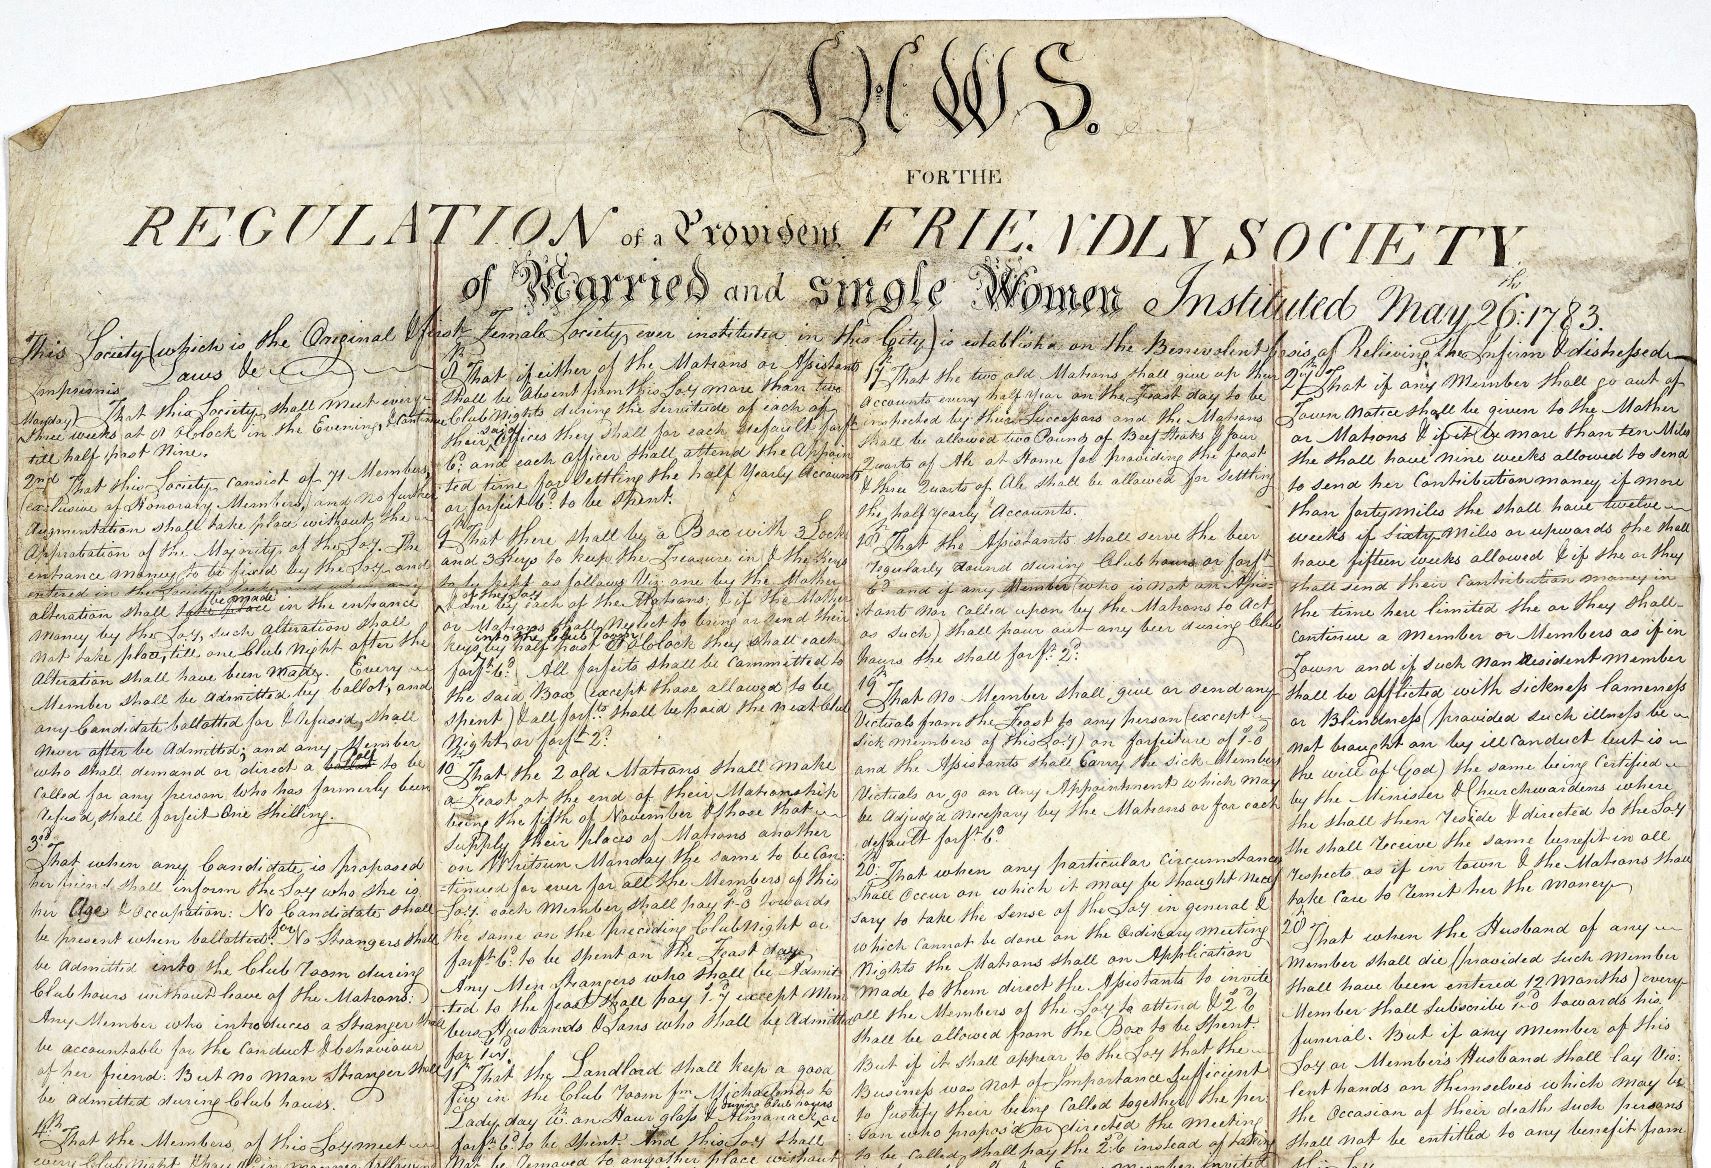 LAWS.
FOR THE
REGULATION of a Provident FRIENDLY SOCIETY
of Married and single Women Instituted May 26th: 1783.
This Society (which is the Original & first Female Society ever instituted in this City) is establish'd on the Benevolent basis of Relieving the Infirm & distressed
Laws &c
Imprimis
Mayday) That this Society shall meet every
three weeks at 8 OClock in the Evening, & Continue
till half past Nine.
2nd That this Society consist of 71 Members,
(exclusive of Honorary Members) and no further
Augmentation shall take place without the
Approbation of the Majority of the Soy. The
entrance money to be fixed by the Soy and
entered in the Society
alteration shall be made take place in the entrance
money by the Soy, such Alteration shall
not take place, till one Club Night after the
Alteration shall have been made. Every
Member shall be Admitted by ballot, and
any Candidate ballotted for & refused, shall
never after be Admitted; and any Member
who shall demand or direct a Poll ballot to be
called for any person who has formerly been
refus'd, shall forfeit One Shilling.
3rd
That when any Candidate is proposed
her friend shall inform the Soy who she is
her Age & occupation: No Candidate shall
be present when ballotted for No Strangers shall
be Admitted into the Club room during
Club hours without leave of the Matrons:
Any Member who introduces a Stranger shall
be accountable for the Conduct & behaviour
of her friend. But no Man Stranger shall
be Admitted during Club hours.
4th
That the Members of this Soy meet
every Club Night & pay
8th That if either of the Matrons or Assistants
shall be Absent from this Soy more than two
Club Nights during the Servitude of each of
their said Offices they shall for each default forft
6d: and each Officer shall attend the Appoin
=ted time for settling the half Yearly Accounts
or forfeit 6d: to be spent.
9th That there shall be a Box with 3 Locks
and 3 Keys to keep the Treasure in & the Keys
to be kept as follows Viz: one by the Mother
of the Soy & one by each of the Matrons: & if the Mother
or Matrons shall Neglect to bring or send their
keys into the Club room by half past 8 OClock they shall each
forft 6d: All forfeits shall be committed to
the said Box (except those allowed to be
spent) & all forfts: shall be paid the next Club
Night, or forft 2d:
10th That the 2 old Matrons shall make
a Feast at the end of their Matronship
being the fifth of November & those that
supply their places of Matrons another
on Whitsun Monday the same to be Con:
=tinued for ever for all the Members of this
Soy. each Member shall pay 1s-0d towards
the same on the preceding Club Night or
forft 6d: to be spent on the Feast day
Any Men Strangers who shall be Admit
ted to the feast shall pay 1s.7d except Mem
bers Husbands & Sons who shall be Admitted
for 1s-0d.
11th That the Landlord shall keep a good
Fire in the Club room fm Michaelmas to
Lady day wth: an Hour glass & Almanack during Club hours or
forft 6d: to be spent. And this Soy shall
not be removed to another place without
17th That the two old Matrons shall give up their
Accounts every half year on the Feast day to be
inspected by their Successors and the Matrons
shall be allowed two Pounds of Beef Steaks & four
Quarts of Ale at Home for providing the feast
& three Quarts of Ale shall be allowed for settling
the half yearly Accounts.
18th That the Assistants shall serve the beer
regularly round during Club hours or forft
6d. and if any Member (who is not an Assis
tant nor called upon by the Matrons to Act
as such) shall pour out any beer during Club
hours she shall forft: 2d:
19th
That no Member shall give or send any
Victuals from the Feast to any person (except
sick members of this Soy) on forfeiture of 1s-0d
and the Assistants shall Carry the sick Members
Victuals or go on any Appointment which may
be Adjudg'd necessary by the Matrons or for each
default forft 6d:
20: That when any particular Circumstances
shall Occur on which it may be thought neces
sary to take the Sense of the Soy in general &
which cannot be done on the Ordinary meeting
Nights the Matrons shall on Application
made to them direct the Assistants to invite
all the Members of the Soy to attend & 2s.6d
shall be allowed from the Box to be spent.
But if it shall appear to the Soy that the
Business was not of Importance sufficient
to Justify their being called together, the per:
son who propos'd (or) directed the Meeting
to be called, shall pay the 2:6 instead of taking
member invited
27th That if any Member shall go out of
Town notice shall be given to the Mother
or Matrons & if it be more than ten Miles
she shall have nine weeks allowed to send
to send her Contribution money if more
than forty miles she shall have twelve
weeks if Sixty Miles or upwards she shall
have fifteen weeks allowed & if she or they
shall send their Contribution money in
the time here limited she or they shall
continue a Member or Members as if in
Town and if such non resident Member
shall be afflicted with sickness lameness
or Blindness (provided such illness be
not brought on by ill Conduct but is
the will of God) the same being Certified
by the Minister & Churchwardens where
she shall then reside & directed to the Soy
she shall receive the same benefit in all
respects as if in town & the Matrons shall
take care to remit her the money
28th
That when the Husband of any
Member shall die (provided such Member
shall have been entered 12 Months) every
Member shall Subscribe 1s-0d towards his
funeral. But if any Member of this
Soy or Member's Husband shall lay Vio:
lent hands on themselves which may be
the Occasion of their death such persons
shall not be entitled to any benefit from
this Soy